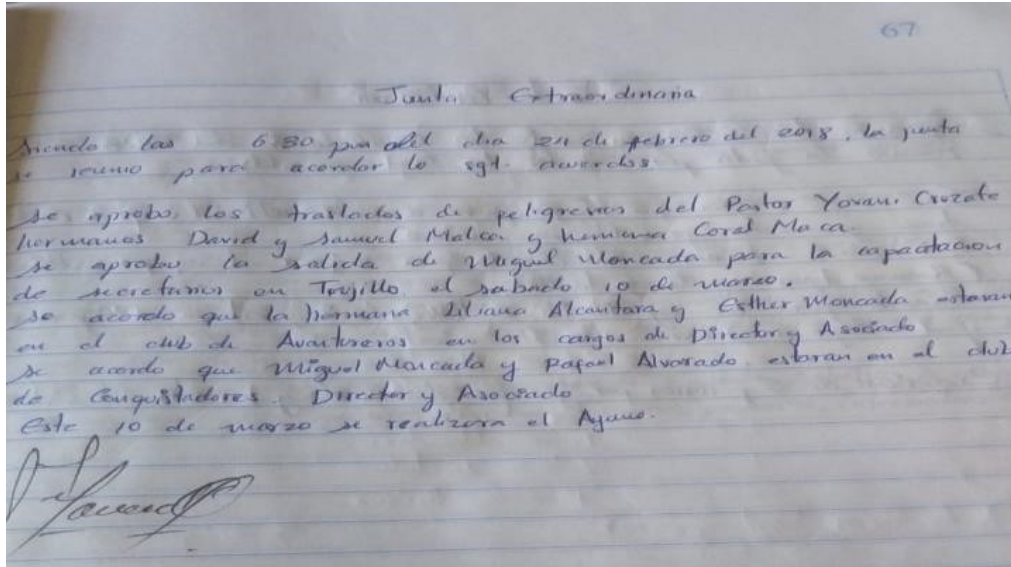 67
Junta Extraordinaria
siendo las 6:30 pm del dia 24 de febrero del 2018, la junta
se reunio para acordar lo sgt. acuerdos.
se aprobo los traslados de peligreses del Pastor Yovani Cruzate
hermanos David y Samuel Malca y hermana Coral Malca.
se aprobo la salida de Miguel Moncada para la capacitacion
de secretarios en Trujillo el sabado 10 de marzo.
se acordo que la hermana Liliana Alcantara y Esther Moncada estaran
en el club de Aventureros en los cargos de Director y Asociado
se acordo que Miguel Moncada y Rafael Alvarado estaran en el club
de Conquistadores Director y Asociado
Este 10 de marzo se realizara el Ayuno.